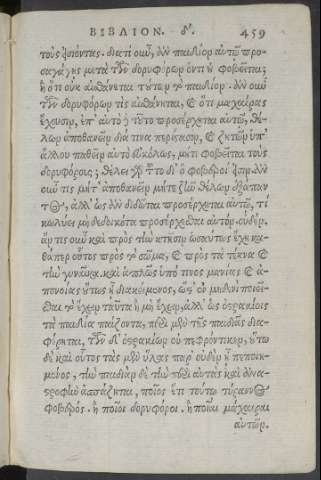 ΒΙΒΛΙΟΝ. δ'. 459
τοὺς εἰσιόντας. διατί οὖν, ἂν παιδίον αὐτῷ προ-
σαγάγῃς μετὰ τῶν δορυφόρων ὄντι οὐ φοβεῖται;
ἢ ὅτι οὐκ αἰσθάνεται τούτων τὸ παιδίον. ἂν οὖν
τῶν δορυφόρων τὶς αἰσθάνηται, καὶ ὅτι μαχαίρας
ἔχουσιν, ἐπ' αὐτὸ δὲ τοῦτο προσέρχεται αὐτῷ, θέ-
λων ἀποθανεῖν διά τινα περίστασιν, καὶ ζητῶν ὑπ'
ἄλλου παθεῖν αὐτὸ εὐκόλως, μήτι φοβεῖται τοὺς
δορυφόρους; θέλει γὰρ τοῦτο δι' ὃ φοβεροί εἰσιν. ἂν
οὖν τις μήτ' ἀποθανεῖν μήτε ζῆν θέλων ἐξάπαν
τος, ἀλλ' ὡς ἂν διδῶται προσέρχεται αὐτῷ, τί
κωλύει μὴ δεδοικότα προσέρχεσθαι αὐτόν. οὐδέν.
ἄν τις οὖν καὶ πρὸς τὴν κτῆσιν ὡσαύτως ἔχῃ κα-
θάπερ οὗτος πρὸς τὸ σῶμα, καὶ πρὸς τὰ τέκνα καὶ
τὴν γυναῖκα καὶ ἁπλῶς ὑπό τινος μανίας καὶ ἀ-
πονοίας οὕτως ᾖ διακείμενος, ὥστ' ἐν μηδενὶ ποιεῖ-
σθαι τὸ ἔχειν ταῦτα ἢ μὴ ἔχειν, ἀλλ' ὡς ὀστρακίοις
τὰ παιδία παίζοντα, περὶ μὲν τῆς παιδιᾶς δια-
φέρηται, τῶν δ' ὀστρακίων οὐ πεφρόντικεν, οὕτω
δὲ καὶ οὗτος τὰς μὲν ὕλας παρ' οὐδὲν ᾖ πεποιη-
μένος, τὴν παιδιὰν δὲ τὴν περὶ αὐτὰς καὶ ἀνα-
στροφὴν ἀσπάζηται, ποῖος ἔτι τούτῳ τύραννος
φοβερός. ἢ ποῖοι δορυφόροι. ἢ ποῖαι μάχαιραι
αὐτῶν.